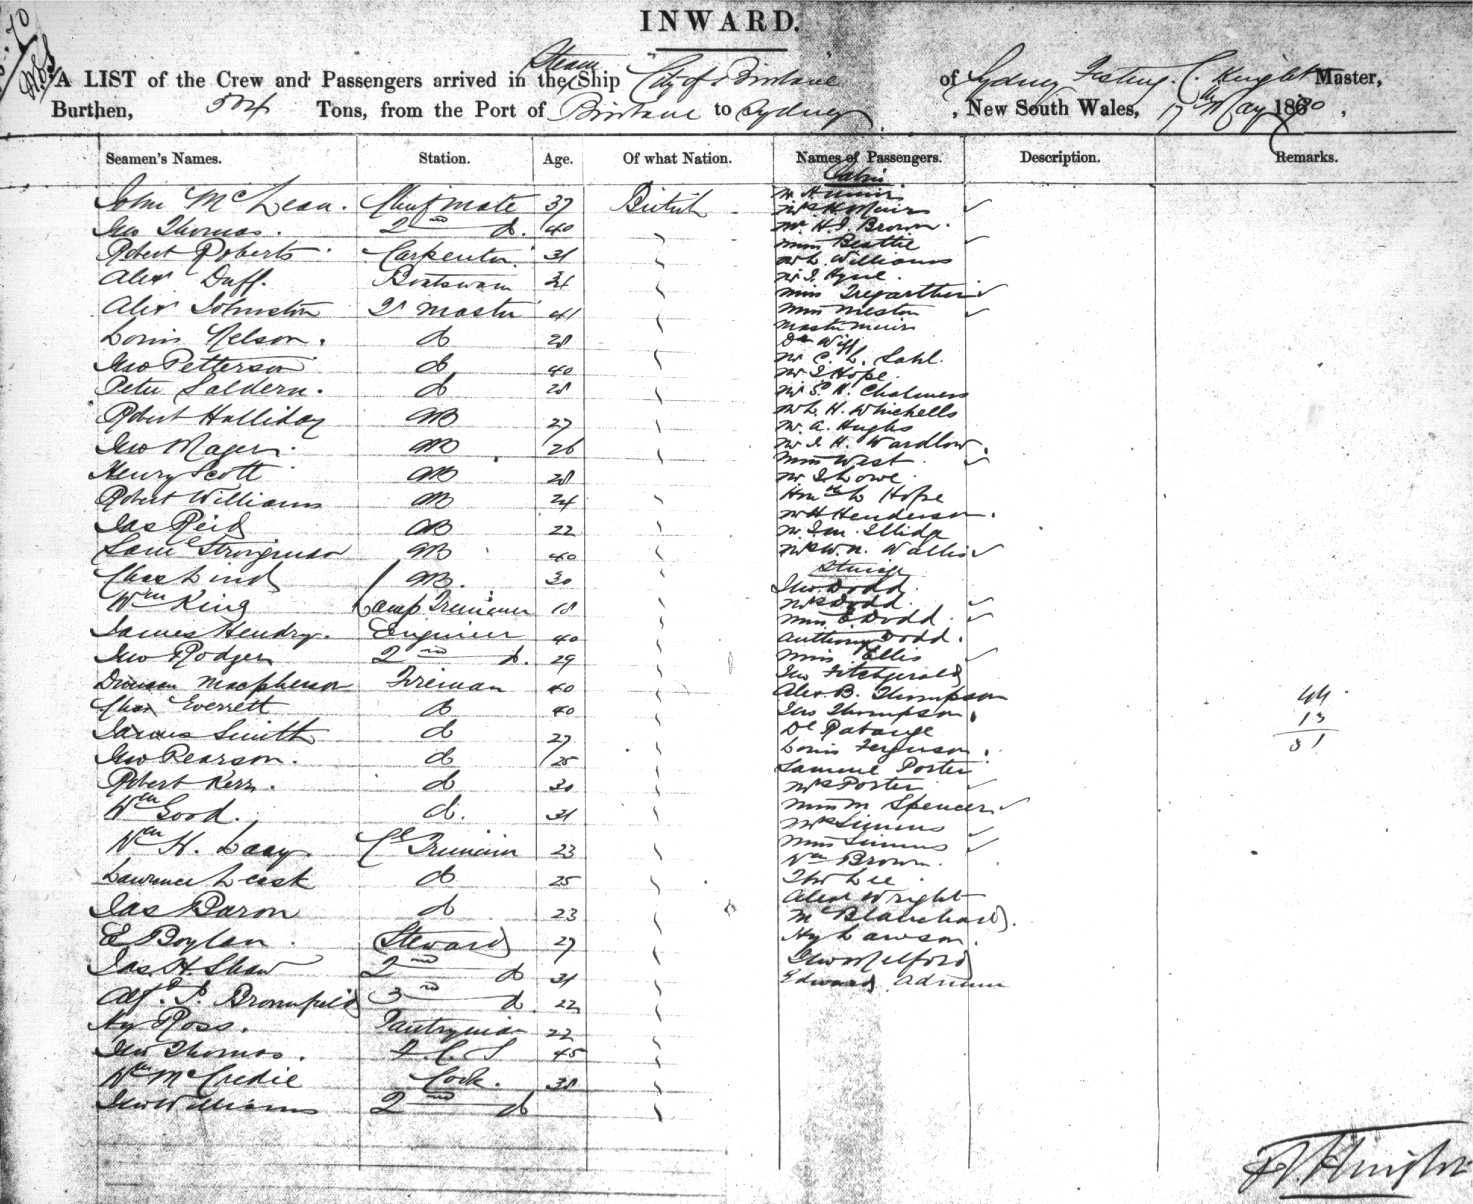 INWARD.
A LIST of the Crew and Passengers arrived in the Steam Ship City of Brisbane of Sydney C. Knight Master,
Burthen, 504 Tons, from the Port of Brisbane to Sydney, New South Wales, 17th May 1880,
Seamen's Names. Station. Age. Of what Nation. Names of Passengers. Description. Remarks.
Cabin
John McLean. Chief Mate 37 British
Jno Thomas. 2nd do. 40
Robert Roberts Carpenter. 31
Alexr Duff. Boatswain 34
Alexr Johnston Qr Master 41
Louis Nelson. do 28
Jno Petterson do 40
Peter Saldern. do 28
Robert Halliday AB 27
Jno Mager. AB 26
Henry Scott AB 28
Robert Williams AB 24
Jas Reid AB 22
Saml Strongman AB 40
Chas Lind AB. 30
Wm King Lamp Trimmer 18
James Hendry. Engineer 40
Jno Rodger 2nd do. 29
Duncan Macpherson Fireman 40
Chas Everrett do 40
James Smith do 27
Jno Pearson. do 25
Robert Kerr. do 30
Wm Good. do. 31
Wm H. Laay. Trimmer 23
Lawrence Leask do 25
Jas Baron do 23
E Boylan. Steward 27
Jas. H. Shaw 2nd do 31
Alf. Bromfield 3rd do. 22
Hy Ross. Pantryman 22
Jno Thomas. F. C. S 45
Wm McCredie Cook. 38
Jno Williams 2nd do
Mr H Muir
Mrs H Muir
Mr H. J. Brown.
Miss Beattie
Mr L Williams
Mr J. Hyne.
Miss Tregarthen
Miss Milston
Master Muir
Dr Wigg
Mr C. L. Sahl.
Mr J Hope.
Mr S. H. Chalmers
Mr L. H. Whichells
Mr A. Hughs
Mr J. H. Wardlow.
Miss West.
Mr J Lowe.
Honble L Hope
Mr H Henderson.
Mr J M. Illidge
Mrs W. N. Wallis
Steerage
Jno Dodd
Mrs Dodd.
Miss E Dodd.
Anthony Dodd.
Miss Ellis
Jno Fitzgerald
Alex B. Thompson
Jno Thompson.
De Patauge
Louis Ferguson.
Samuel Porter
Mrs Porter
Miss M Spencer
Mrs Simms
Miss Simms
Wm Brown.
Thos Lee.
Alexr Wright
Mc Blanchard.
Hy Lawson.
Jno Melford
Edward
44
13
31
Knight